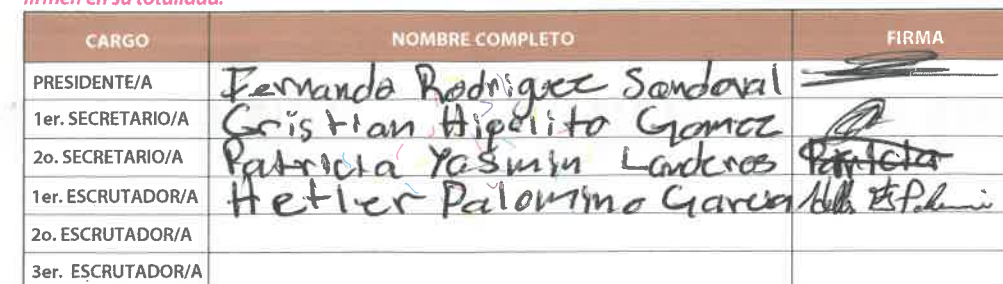 firmen en su totalidad.
CARGO NOMBRE COMPLETO FIRMA
PRESIDENTE/A Fernando Rodriguez Sandoval
1er. SECRETARIO/A Cristian Hipolito Gomez
2o. SECRETARIO/A Patricia Yasmin Landeros Patricia
1er. ESCRUTADOR/A Hetler Palomino Garcia
2o. ESCRUTADOR/A
3er. ESCRUTADOR/A